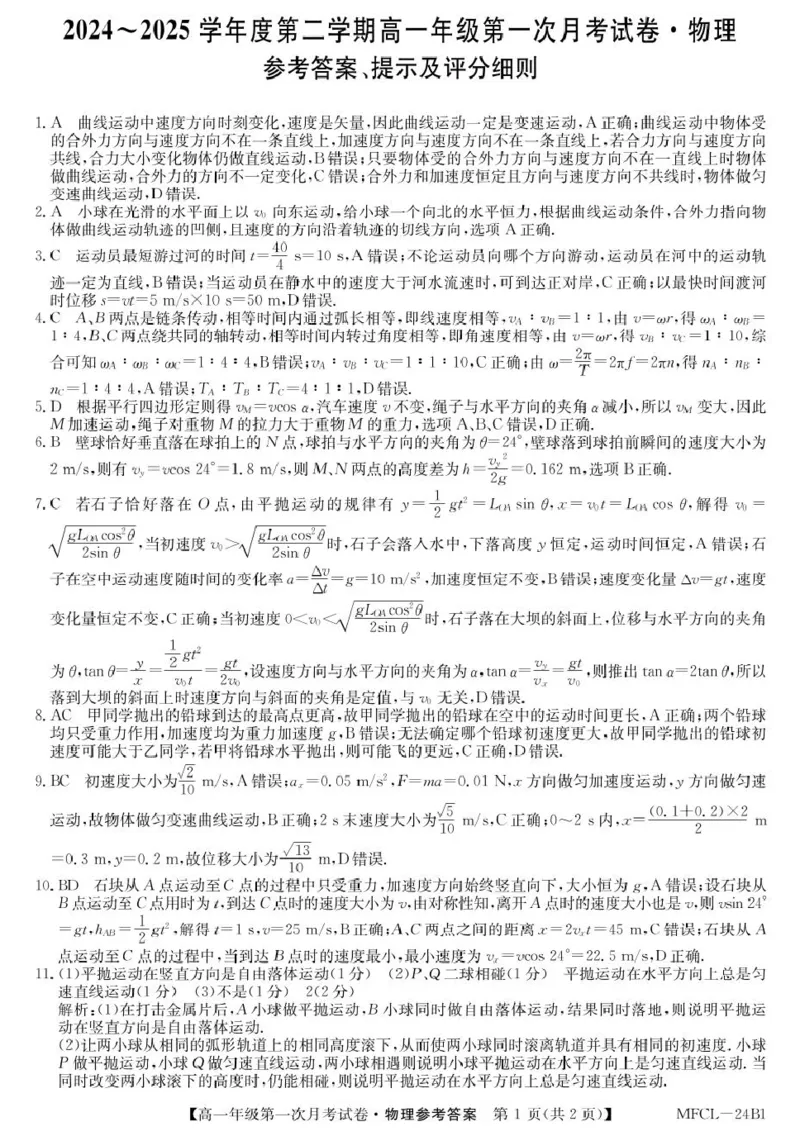 2024～2025 学年度第二学期高一年级第一次月考试卷·物理
参考答案、提示及评分细则
1. A　曲线运动中速度方向时刻变化,速度是矢量,因此曲线运动一定是变速运动,A 正确;曲线运动中物体受
的合外力方向与速度方向不在一条直线上,加速度方向与速度方向不在一条直线上,若合力方向与速度方向
共线,合力大小变化物体仍做直线运动,B 错误;只要物体受的合外力方向与速度方向不在一直线上时物体
做曲线运动,合外力的方向不一定变化,C 错误;合外力和加速度恒定且方向与速度方向不共线时,物体做匀
变速曲线运动,D 错误.
2. A　小球在光滑的水平面上以 v₀ 向东运动,给小球一个向北的水平恒力,根据曲线运动条件,合外力指向物
体做曲线运动轨迹的凹侧,且速度的方向沿着轨迹的切线方向,选项 A 正确.
3. C　运动员最短游过河的时间 t=40/4 s=10 s,A 错误;不论运动员向哪个方向游动,运动员在河中的运动轨
迹一定为直线,B 错误;当运动员在静水中的速度大于河水流速时,可到达正对岸,C 正确;以最快时间渡河
时位移 s=vt=5 m/s×10 s=50 m,D 错误.
4. C　A、B 两点是链条传动,相等时间内通过弧长相等,即线速度相等,v_A∶v_B=1∶1,由 v=ωr,得 ω_A∶ω_B=
1∶4,B、C 两点绕共同的轴转动,相等时间内转过角度相等,即角速度相等,由 v=ωr,得 v_B∶v_C=1∶10,综
合可知 ω_A∶ω_B∶ω_C=1∶4∶4,B 错误;v_A∶v_B∶v_C=1∶1∶10,C 正确;由 ω=2π/T=2πf=2πn,得 n_A∶n_B∶
n_C=1∶4∶4,A 错误;T_A∶T_B∶T_C=4∶1∶1,D 错误.
5. D　根据平行四边形定则得 v_M=vcos α,汽车速度 v 不变,绳子与水平方向的夹角 α 减小,所以 v_M 变大,因此
M 加速运动,绳子对重物 M 的拉力大于重物 M 的重力,选项 A、B、C 错误,D 正确.
6. B　壁球恰好垂直落在球拍上的 N 点,球拍与水平方向的夹角为 θ=24°,壁球落到球拍前瞬间的速度大小为
2 m/s,则有 v_y=vcos 24°=1.8 m/s,则 M、N 两点的高度差为 h=v_y²/2g=0.162 m,选项 B 正确.
7. C　若石子恰好落在 O 点,由平抛运动的规律有 y=1/2 gt²=L_OA sin θ,x=v₀t=L_OA cos θ,解得 v₀=
√(gL_OA cos²θ/2sin θ),当初速度 v₀>√(gL_OA cos²θ/2sin θ)时,石子会落入水中,下落高度 y 恒定,运动时间恒定,A 错误;石
子在空中运动速度随时间的变化率 a=Δv/Δt=g=10 m/s²,加速度恒定不变,B 错误;速度变化量 Δv=gt,速度
变化量恒定不变,C 正确;当初速度 0<v₀<√(gL_OA cos²θ/2sin θ)时,石子落在大坝的斜面上,位移与水平方向的夹角
为 θ,tan θ=y/x=(1/2 gt²)/(v₀t)=gt/2v₀,设速度方向与水平方向的夹角为 α,tan α=v_y/v_x=gt/v₀,则推出 tan α=2tan θ,所以
落到大坝的斜面上时速度方向与斜面的夹角是定值,与 v₀ 无关,D 错误.
8. AC　甲同学抛出的铅球到达的最高点更高,故甲同学抛出的铅球在空中的运动时间更长,A 正确;两个铅球
均只受重力作用,加速度均为重力加速度 g,B 错误;无法确定哪个铅球初速度更大,故甲同学抛出的铅球初
速度可能大于乙同学,若甲将铅球水平抛出,则可能飞的更远,C 正确,D 错误.
9. BC　初速度大小为√2/10 m/s,A 错误;a_x=0.05 m/s²,F=ma=0.01 N,x 方向做匀加速度运动,y 方向做匀速
运动,故物体做匀变速曲线运动,B 正确;2 s 末速度大小为√5/10 m/s,C 正确;0～2 s 内,x=(0.1+0.2)×2/2 m
=0.3 m,y=0.2 m,故位移大小为√13/10 m,D 错误.
10. BD　石块从 A 点运动至 C 点的过程中只受重力,加速度方向始终竖直向下,大小恒为 g,A 错误;设石块从
B 点运动至 C 点用时为 t,到达 C 点时的速度大小为 v,由对称性知,离开 A 点时的速度大小也是 v,则 vsin 24°
=gt,h_AB=1/2 gt²,解得 t=1 s,v=25 m/s,B 正确;A、C 两点之间的距离 x=2v_x t=45 m,C 错误;石块从 A
点运动至 C 点的过程中,当到达 B 点时的速度最小,最小速度为 v_x=vcos 24°=22.5 m/s,D 正确.
11. (1)平抛运动在竖直方向是自由落体运动(1 分)　(2)P、Q 二球相碰(1 分)　平抛运动在水平方向上总是匀
速直线运动(1 分)　(3)不是(1 分)　2(2 分)
解析:(1)在打击金属片后,A 小球做平抛运动,B 小球同时做自由落体运动,结果同时落地,则说明平抛运
动在竖直方向是自由落体运动.
(2)让两小球从相同的弧形轨道上的相同高度滚下,从而使两小球同时滚离轨道并具有相同的初速度. 小球
P 做平抛运动,小球 Q 做匀速直线运动,两小球相遇则说明小球平抛运动在水平方向上是匀速直线运动. 当
同时改变两小球滚下的高度时,仍能相碰,则说明平抛运动在水平方向上总是匀速直线运动.
【高一年级第一次月考试卷·物理参考答案　第 1 页(共 2 页)】　MFCL—24B1